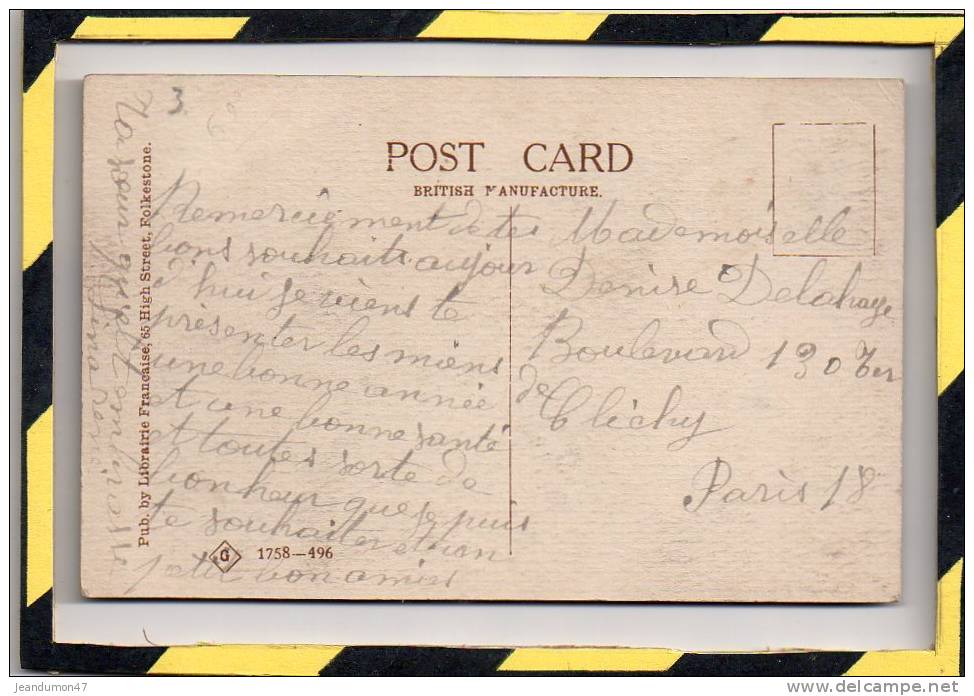 3
POST CARD
BRITISH MANUFACTURE.
Remerciêment de tes
bons souhaits aujour
d'hui je viens te
présenter les miens
une bonne année
et une bonne santé
et toutes sorte de
bonheur que je puis
te souhaiter et ton
petit bon amies
Mademoiselle
Denise Delahaye
Boulevard 130 Ter
de Clichy
Paris 18
Ta soeur qui t'embrasse
Pub. by Librairie Française, 65 High Street, Folkestone.
G 1758—496
jeandumon47
www.delcampe.net